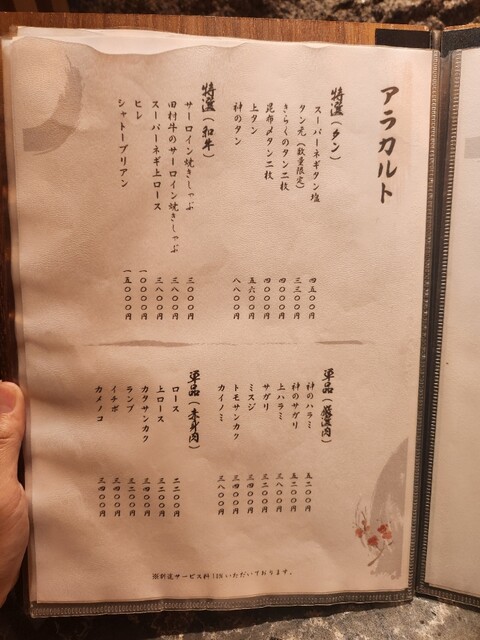 アラカルト
特選（タン）
スーパーネギタン塩 四五〇〇円
タン元（数量限定） 三三〇〇円
きらくのタン二枚 四〇〇〇円
昆布〆タン二枚 四〇〇〇円
上タン 五六〇〇円
神のタン 八八〇〇円
特選（和牛）
サーロイン焼きしゃぶ 三〇〇〇円
田村牛のサーロイン焼きしゃぶ 三八〇〇円
スーパーネギ上ロース 三八〇〇円
ヒレ 一〇〇〇〇円
シャトーブリアン 一五〇〇〇円
単品（厳選肉）
神のハラミ 五二〇〇円
神のサガリ 五二〇〇円
上ハラミ 三八〇〇円
サガリ 三二〇〇円
ミスジ 三四〇〇円
トモサンカク 三四〇〇円
カイノミ 三八〇〇円
単品（赤身肉）
ロース 二二〇〇円
上ロース 三二〇〇円
カタサンカク 三四〇〇円
ランプ 三二〇〇円
イチボ 三四〇〇円
カメノコ 三四〇〇円
※別途サービス料10%いただいております。